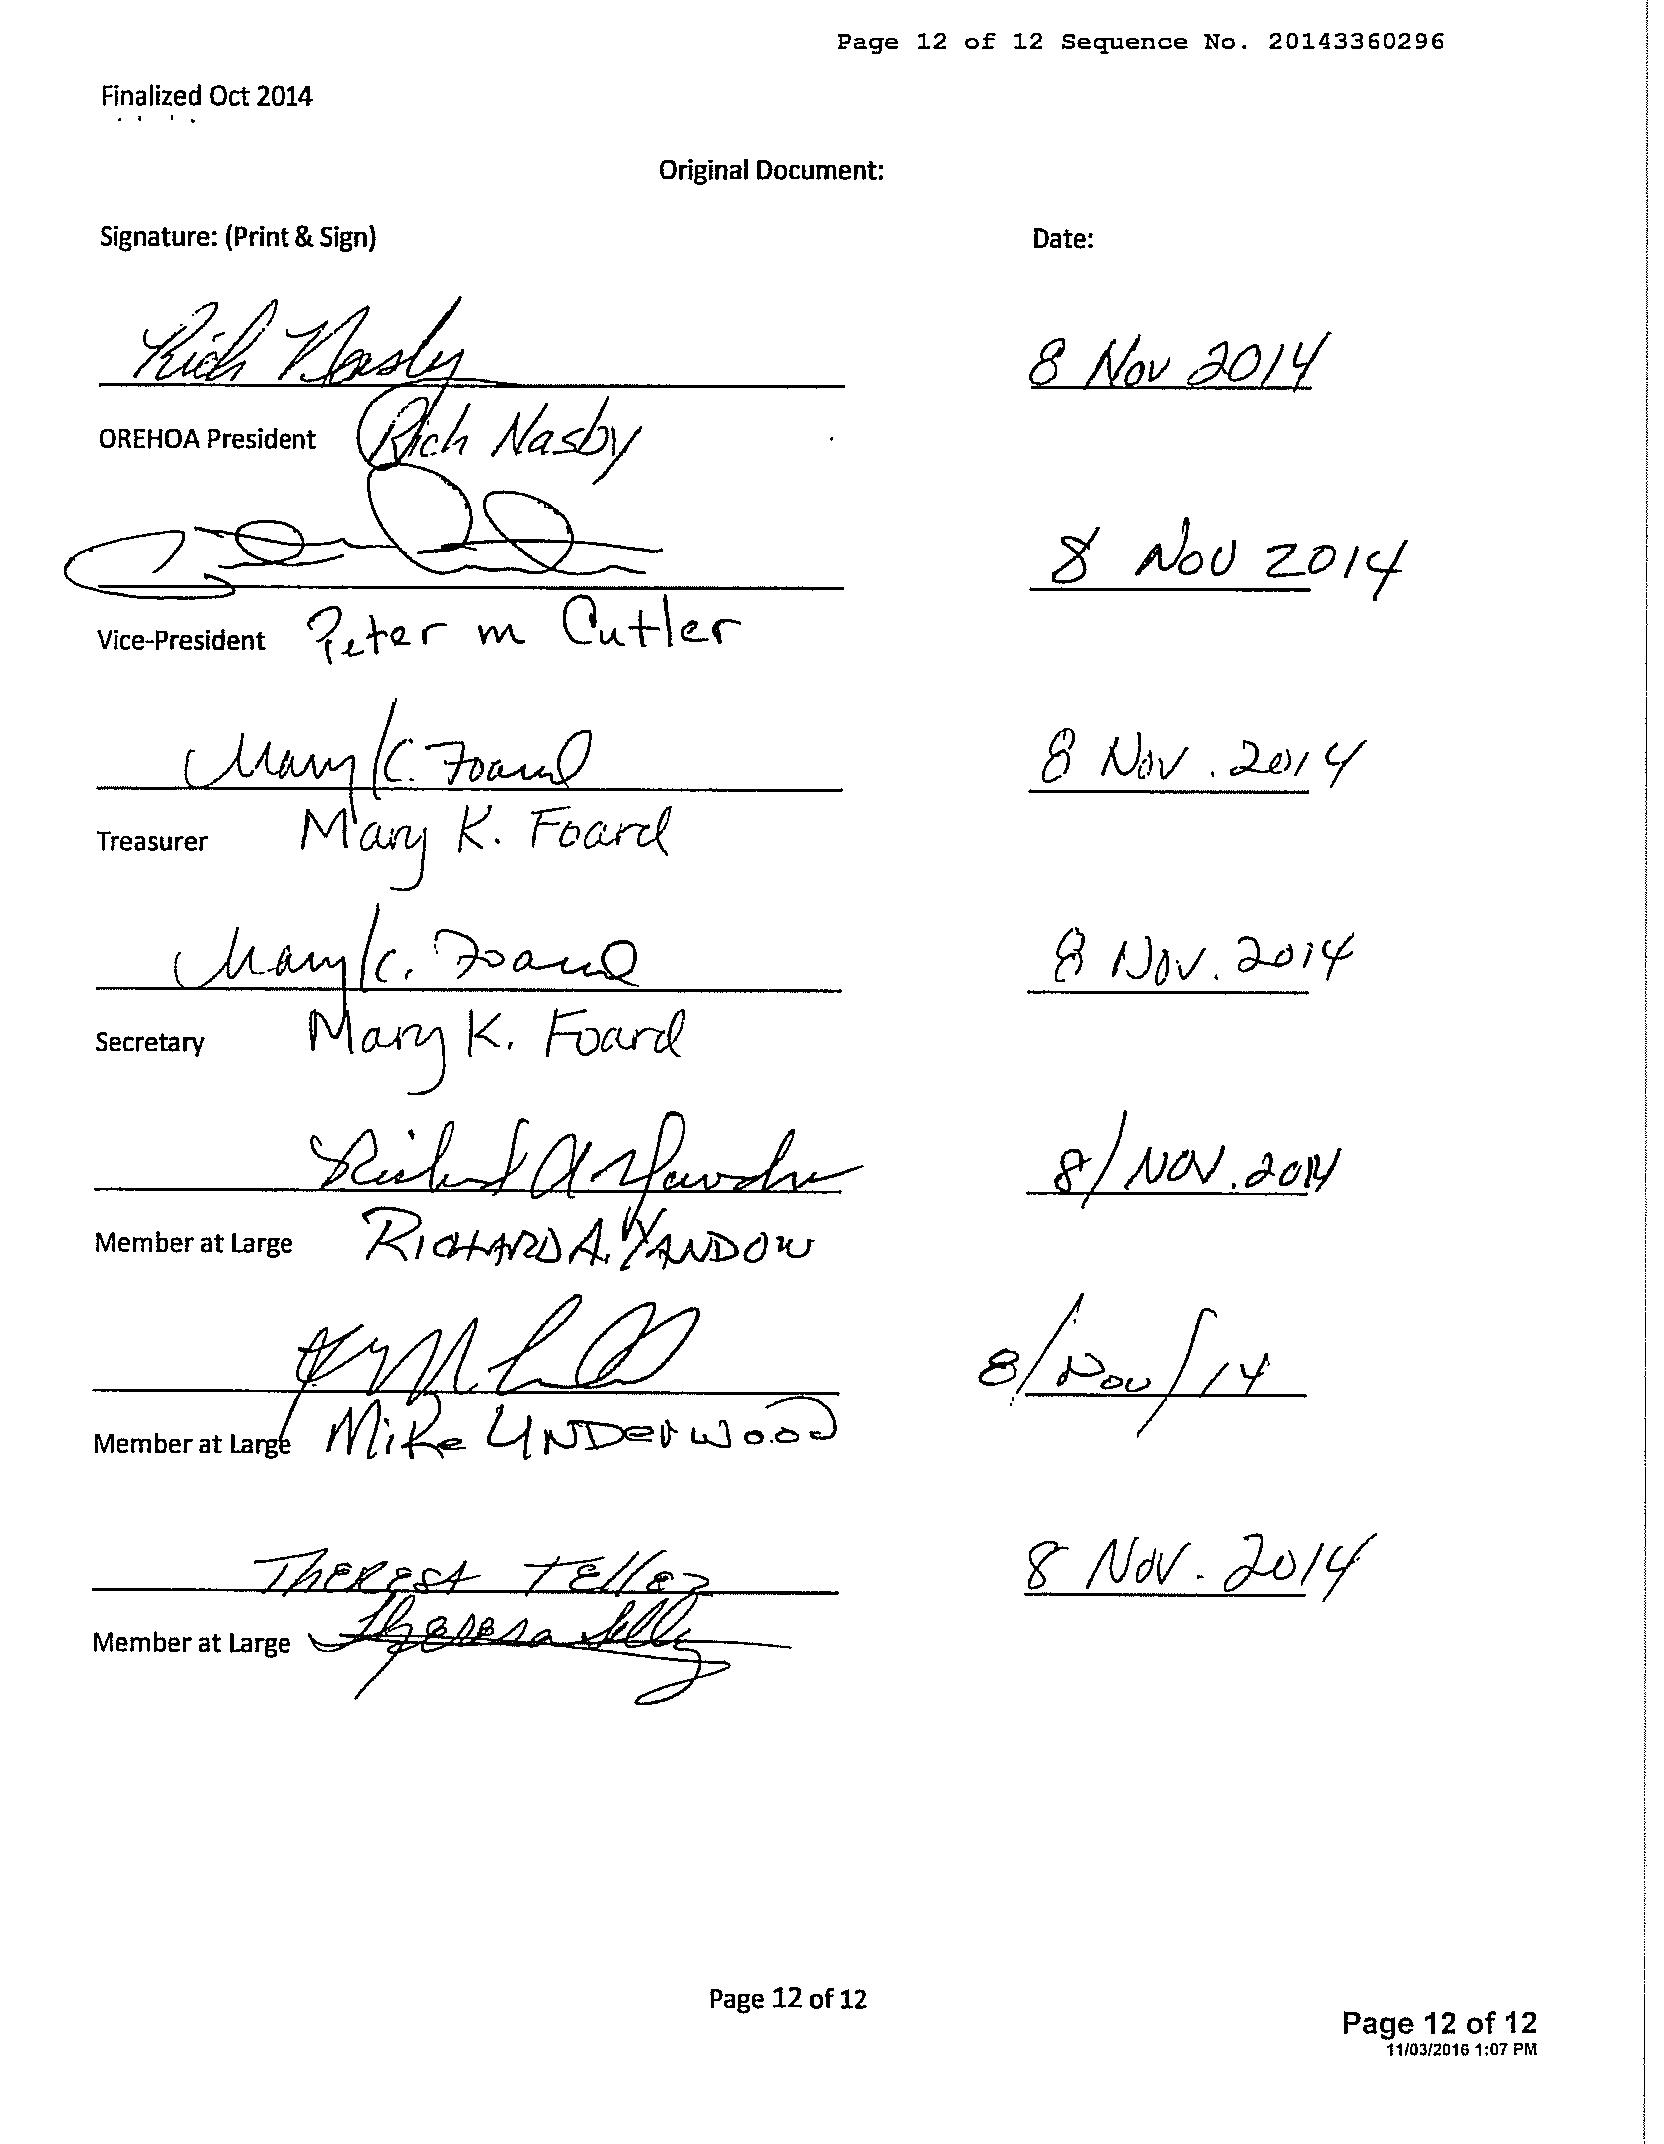 Page 12 of 12 Sequence No. 20143360296
Finalized Oct 2014
Original Document:
Signature: (Print & Sign) Date:
Rich Nasby 8 Nov 2014
OREHOA President Rich Nasby
8 Nov 2014
Vice-President Peter m Cutler
Mary K. Foard 8 Nov. 2014
Treasurer Mary K. Foard
Mary K. Foard 8 Nov. 2014
Secretary Mary K. Foard
Richard A Yandow 8/NOV.2014
Member at Large RICHARD A. YANDOW
8/Nov/14
Member at Large Mike UNDerwood
THERESA Tellez 8 Nov. 2014
Member at Large Theresa Tellez
Page 12 of 12
Page 12 of 12
11/03/2016 1:07 PM